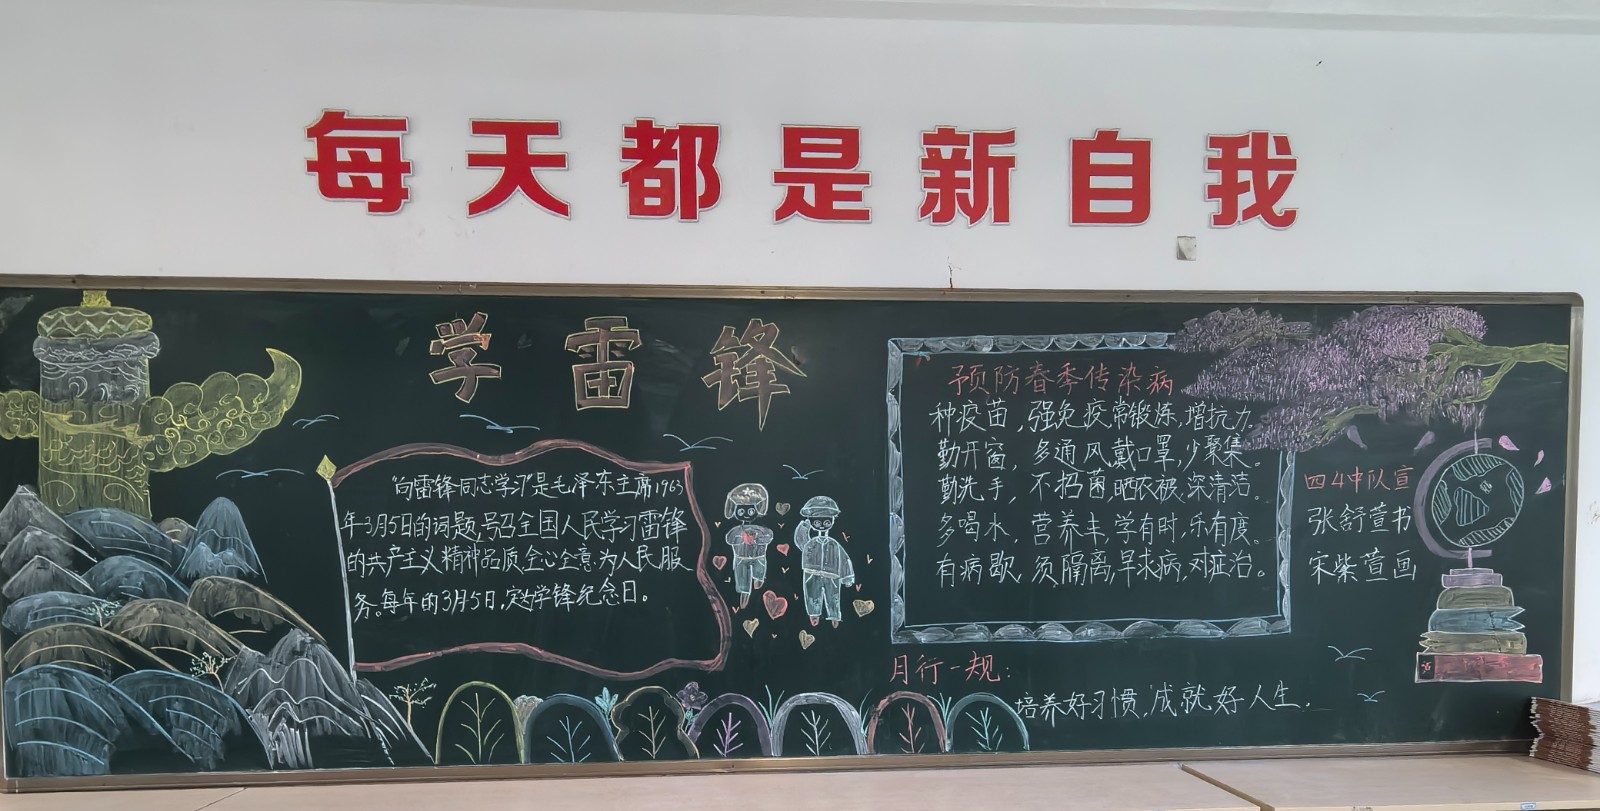 每天都是新自我
学雷锋
"向雷锋同志学习"是毛泽东主席1963
年3月5日的词题,号召全国人民学习雷锋
的共产主义精神品质,全心全意为人民服
务。每年的3月5日,定为学锋纪念日。
予预防春季传染病
种疫苗,强免疫常锻炼,增抗力。
勤开窗,多通风戴口罩,少聚集。
勤洗手,不招菌晒衣被,深清洁。
多喝水,营养丰,学有时,乐有度。
有病歇,须隔离,早求病,对症治。
四4中队宣
张舒萱书
宋紫萱画
月行一规:
培养好习惯,成就好人生.